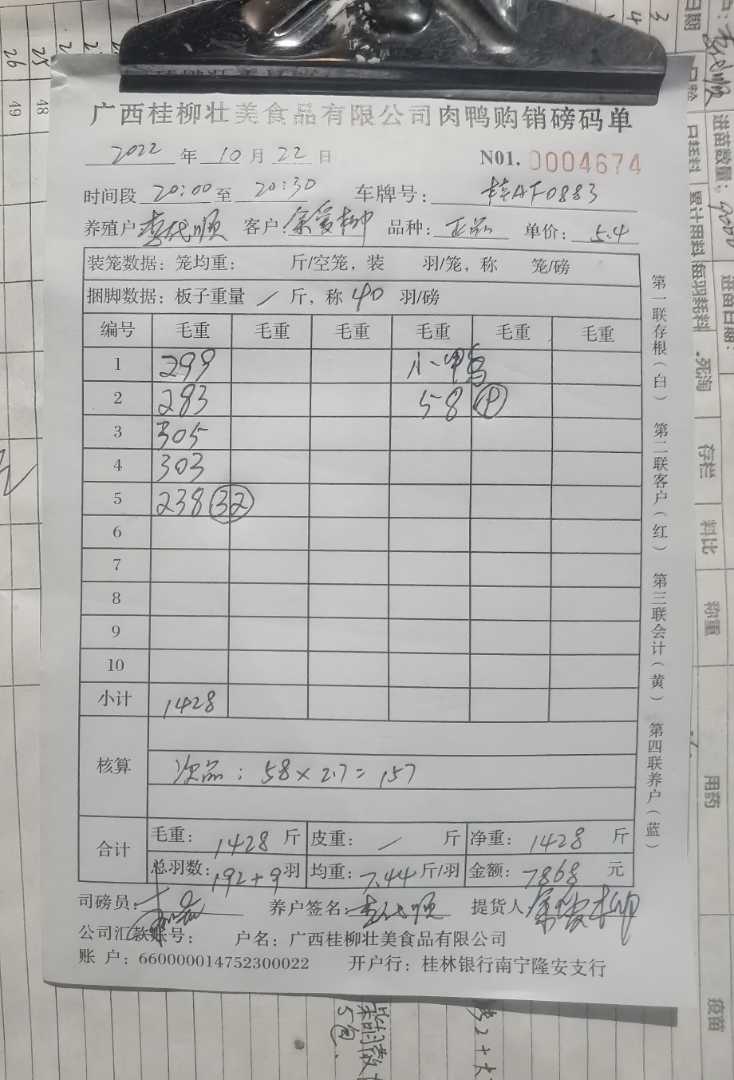 广西桂柳壮美食品有限公司肉鸭购销磅码单
2022 年 10 月 22 日 N01. 0004674
时间段 20:00 至 20:30 车牌号: 桂AF0883
养殖户 李代顺 客户: 品种: 正品 单价: 5.4
装笼数据: 笼均重: 斤/空笼, 装 羽/笼, 称 笼/磅
捆脚数据: 板子重量 / 斤, 称 40 羽/磅
编号 毛重 毛重 毛重 毛重 毛重 毛重
1 299 小鸭
2 283 58 ⑨
3 305
4 303
5 238 ㉜
6
7
8
9
10
小计 1428
核算 次品: 58×2.7=157
合计 毛重: 1428 斤 皮重: / 斤 净重: 1428 斤
总羽数: 192+9 羽 均重: 7.44 斤/羽 金额: 7868 元
司磅员: 养户签名: 李代顺 提货人
公司汇款账号: 户名: 广西桂柳壮美食品有限公司
账 户: 660000014752300022 开户行: 桂林银行南宁隆安支行
第一联存根(白) 第二联客户(红) 第三联会计(黄) 第四联养户(蓝)
25
26
48
49
3
4
日期
进苗数量: 9000
进苗日期:
日耗料
累计用料
每羽耗料
死淘
存栏
料比
称重
用药
疫苗
5包.